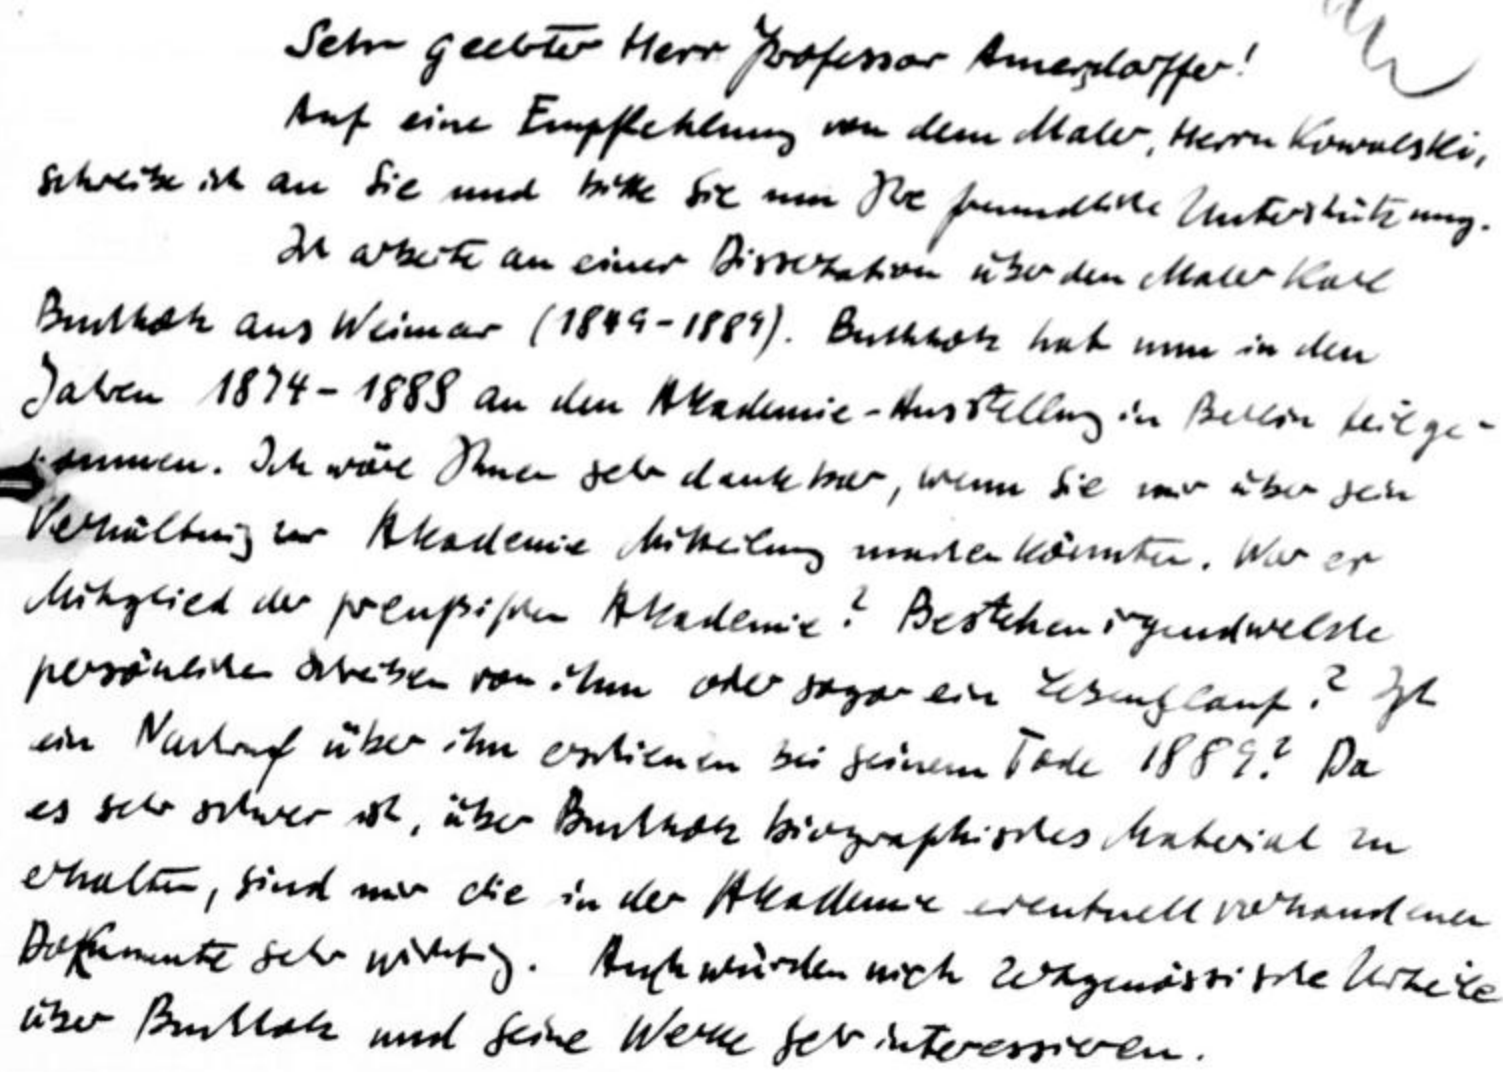 Sehr geehrter Herr Professor Amersdorffer!
Auf eine Empfehlung von dem Maler, Herrn Kowalski,
schreibe ich an Sie und bitte Sie um Ihre freundliche Unterstützung.
Ich arbeite an einer Dissertation über den Maler Karl
Buchholz aus Weimar (1849-1889). Buchholz hat nun in den
Jahren 1874-1888 an den Akademie-Ausstellung in Berlin teilge-
nommen. Ich wäre Ihnen sehr dankbar, wenn Sie mir über sein
Verhältnis zur Akademie Mitteilung machen könnten. War er
Mitglied der preußischen Akademie? Bestehen irgendwelche
persönlichen Schreiben von ihm oder sogar ein Lebenslauf? Ist
ein Nachruf über ihn erschienen bei seinem Tode 1889? Da
es sehr schwer ist, über Buchholz biographisches Material zu
erhalten, sind mir die in der Akademie eventuell vorhandenen
Dokumente sehr wichtig. Auch würden mich zeitgenössische Urteile
über Buchholz und seine Werke sehr interessieren.